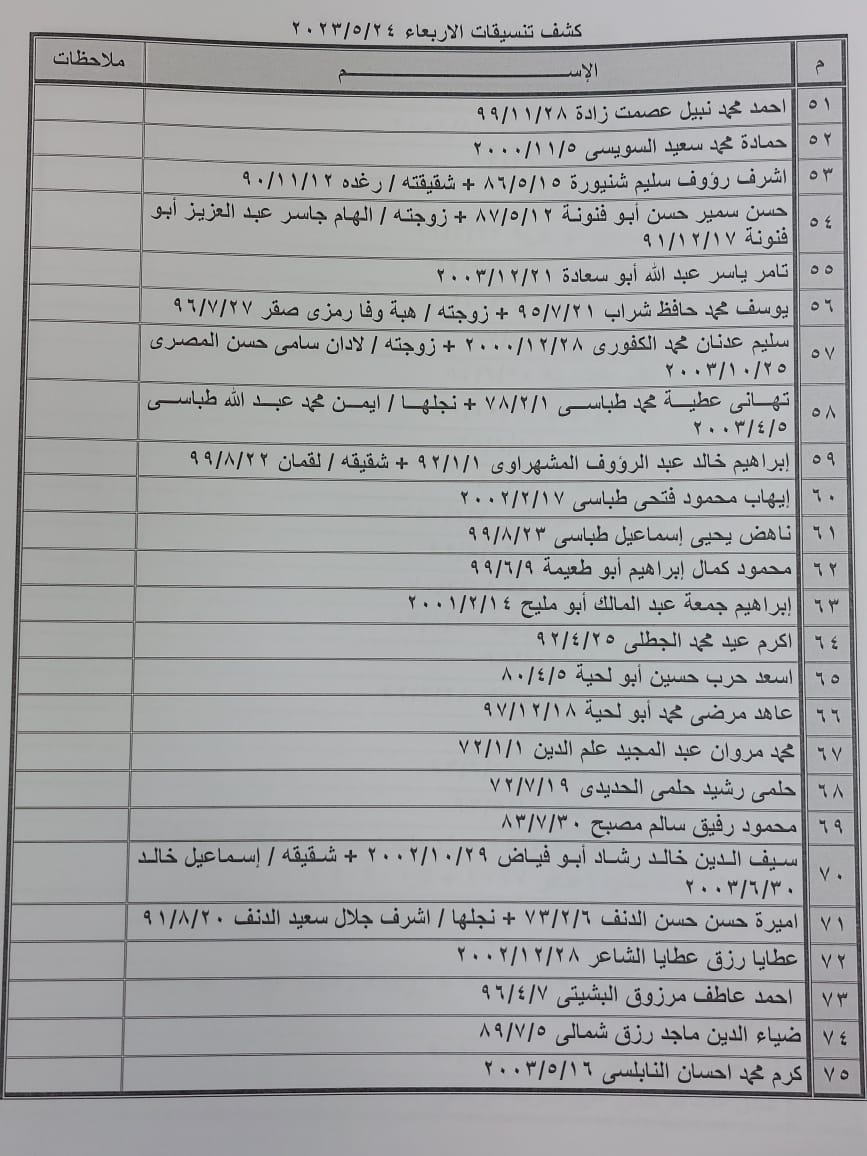 كشف تنسيقات الاربعاء ٢٠٢٣/٥/٢٤
م الإســـــم ملاحظات
٥١ احمد محمد نبيل عصمت زادة ٩٩/١١/٢٨
٥٢ حمادة محمد سعيد السويسى ٢٠٠٠/١١/٥
٥٣ اشرف رؤوف سليم شنيورة ٨٦/٥/١٥ + شقيقته / رغده ٩٠/١١/١٢
٥٤ حسن سمير حسن أبو فنونة ٨٧/٥/١٢ + زوجته / الهام جاسر عبد العزيز أبو
فنونة ٩١/١٢/١٧
٥٥ تامر ياسر عبد الله أبو سعادة ٢٠٠٣/١٢/٢١
٥٦ يوسف محمد حافظ شراب ٩٥/٧/٢١ + زوجته / هبة وفا رمزى صقر ٩٦/٧/٢٧
٥٧ سليم عدنان محمد الكفورى ٢٠٠٠/١٢/٢٨ + زوجته / لادان سامى حسن المصرى
٢٠٠٣/١٠/٢٥
٥٨ تهانى عطية محمد طباسى ٧٨/٢/١ + نجلها / ايمن محمد عبد الله طباسى
٢٠٠٣/٤/٥
٥٩ إبراهيم خالد عبد الرؤوف المشهراوى ٩٢/١/١ + شقيقه / لقمان ٩٩/٨/٢٢
٦٠ إيهاب محمود فتحى طباسى ٢٠٠٢/٢/١٧
٦١ ناهض يحيى إسماعيل طباسى ٩٩/٨/٢٣
٦٢ محمود كمال إبراهيم أبو طعيمة ٩٩/٦/٩
٦٣ إبراهيم جمعة عبد المالك أبو مليح ٢٠٠١/٢/١٤
٦٤ اكرم عيد محمد الجطلى ٩٢/٤/٢٥
٦٥ اسعد حرب حسين أبو لحية ٨٠/٤/٥
٦٦ عاهد مرضى محمد أبو لحية ٩٧/١٢/١٨
٦٧ محمد مروان عبد المجيد علم الدين ٧٢/١/١
٦٨ حلمى رشيد حلمى الحديدى ٧٢/٧/١٩
٦٩ محمود رفيق سالم مصبح ٨٣/٧/٣٠
٧٠ سيف الدين خالد رشاد أبو فياض ٢٠٠٢/١٠/٢٩ + شقيقه / إسماعيل خالد
٢٠٠٣/٦/٣٠
٧١ اميرة حسن حسن الدنف ٧٣/٢/٦ + نجلها / اشرف جلال سعيد الدنف ٩١/٨/٢٠
٧٢ عطايا رزق عطايا الشاعر ٢٠٠٢/١٢/٢٨
٧٣ احمد عاطف مرزوق البشيتى ٩٦/٤/٧
٧٤ ضياء الدين ماجد رزق شمالى ٨٩/٧/٥
٧٥ كرم محمد احسان النابلسى ٢٠٠٣/٥/١٦